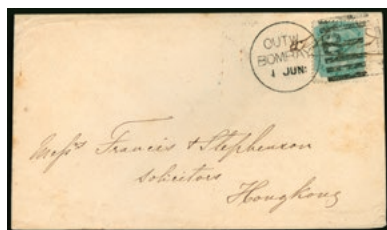 OUTW
BOMBAY
1 JUN
Mess<sup>rs</sup> Francis & Stephenson
Solicitors
Hongkong